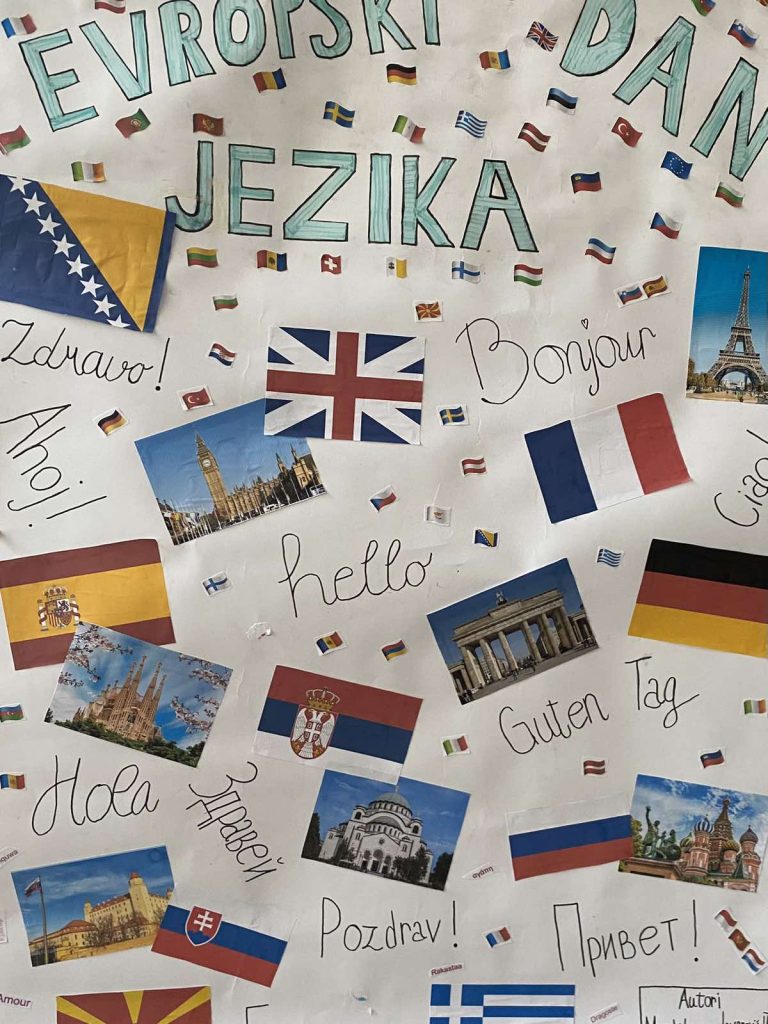 EVROPSKI DAN
JEZIKA
Zdravo!
Bonjour
Ahoj!
Ciao!
hello
Guten Tag
Hola
Здравей
Pozdrav!
Привет!
Rakastaa
Amour
Autori